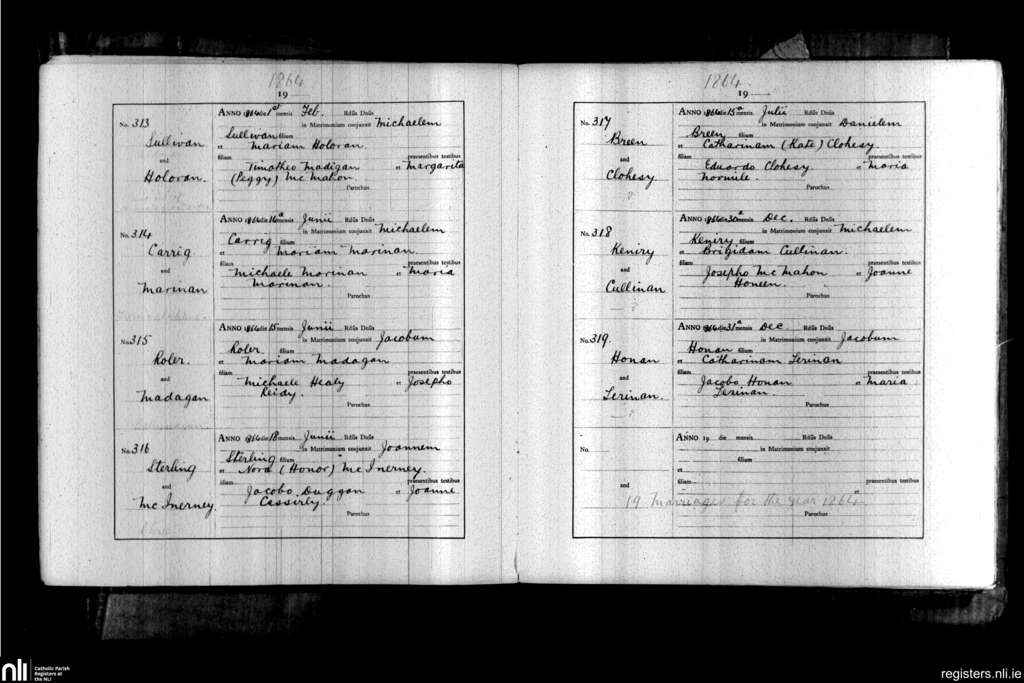 1864
19
No. 313
Sullivan
and
Holoran.
ANNO 1864 die 1st mensis Feb. Rdus Dnus
in Matrimonium conjunxit Michaelem
Sullivan filium
et Mariam Holoran.
filiam praesentibus testibus
Timotheo Madigan et Margarita
(Peggy) Mc Mahon.
Parochus
No. 314
Carrig
and
Marinan
ANNO 1864 die 14a mensis Junii Rdus Dnus
in Matrimonium conjunxit Michaelem
Carrig filium
et Mariam Marinan.
filiam praesentibus testibus
Michaele Marinan et Maria
Marinan.
Parochus
No. 315
Roler.
and
Madagan
ANNO 1864 die 15 mensis Junii Rdus Dnus
in Matrimonium conjunxit Jacobum
Roler filium
et Mariam Madagan
filiam praesentibus testibus
Michaele Healy et Josepho
Reidy.
Parochus
No. 316
Sterling
and
Mc Inerney.
ANNO 1864 die 18 mensis Junii Rdus Dnus
in Matrimonium conjunxit Joannem
Sterling filium
et Nora (Honor) Mc Inerney.
filiam praesentibus testibus
Jacobo Duggan et Joanne
Casserly.
Parochus
1864
19
No. 317
Breen
and
Clohesy
?
ANNO 1864 die 15a mensis Julii Rdus Dnus
in Matrimonium conjunxit Danielem
Breen filium
et Catharinam (Kate) Clohesy.
filiam praesentibus testibus
Eduardo Clohesy. et Maria
Normile.
Parochus
No. 318
Keniry
and
Cullinan
?
ANNO 1864 die 30a mensis Dec. Rdus Dnus
in Matrimonium conjunxit Michaelem
Keniry filium
et Brigidam Cullinan.
filiam praesentibus testibus
Josepho Mc Mahon et Joanne
Honeen.
Parochus
No. 319.
Honan
and
Lerinan.
?
ANNO 1864 die 31a mensis Dec Rdus Dnus
in Matrimonium conjunxit Jacobum
Honan filium
et Catharinam Lerinan
filiam praesentibus testibus
Jacobo Honan et Maria
Lerinan.
Parochus
No.
and
ANNO 19 die mensis Rdus Dnus
in Matrimonium conjunxit
filium
et
filiam praesentibus testibus
et
19 Marriages for the year 1864.
Parochus
nli
Catholic Parish
Registers at
the NLI
registers.nli.ie